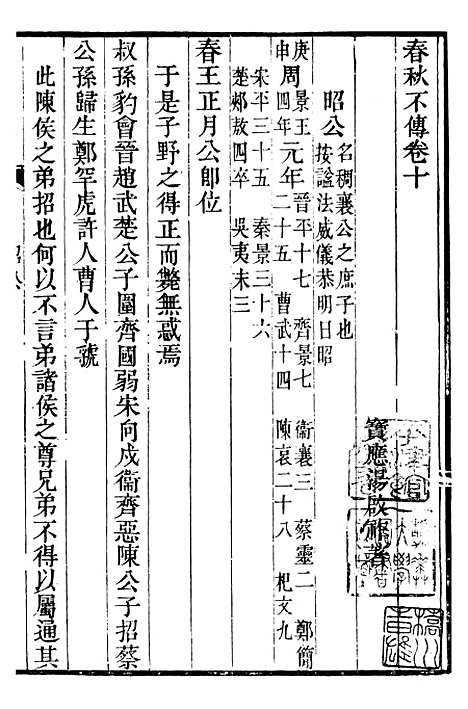 春秋不傳卷十
寶應湯啟祚著
昭公 名稠襄公之庶子也 按諡法威儀恭明曰昭
庚申 周景王四年 元年 晉平十七 齊景七 衞襄三 蔡靈二 鄭簡二十五 曹武十四 陳哀二十八 杞文九
宋平三十五 秦景三十六 楚郟敖四卒 吳夷末三
春王正月公卽位
于是子野之得正而斃無惑焉
叔孫豹會晉趙武楚公子圍齊國弱宋向戍衞齊惡陳公子招蔡
公孫歸生鄭罕虎許人曹人于虢
此陳侯之弟招也何以不言弟諸侯之尊兄弟不得以屬通其